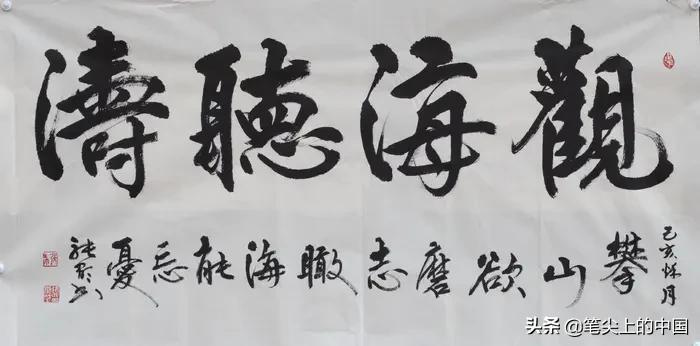 觀海聽濤
己亥秌月
攀山欲磨志瞰海能忘憂
头条 @笔尖上的中国